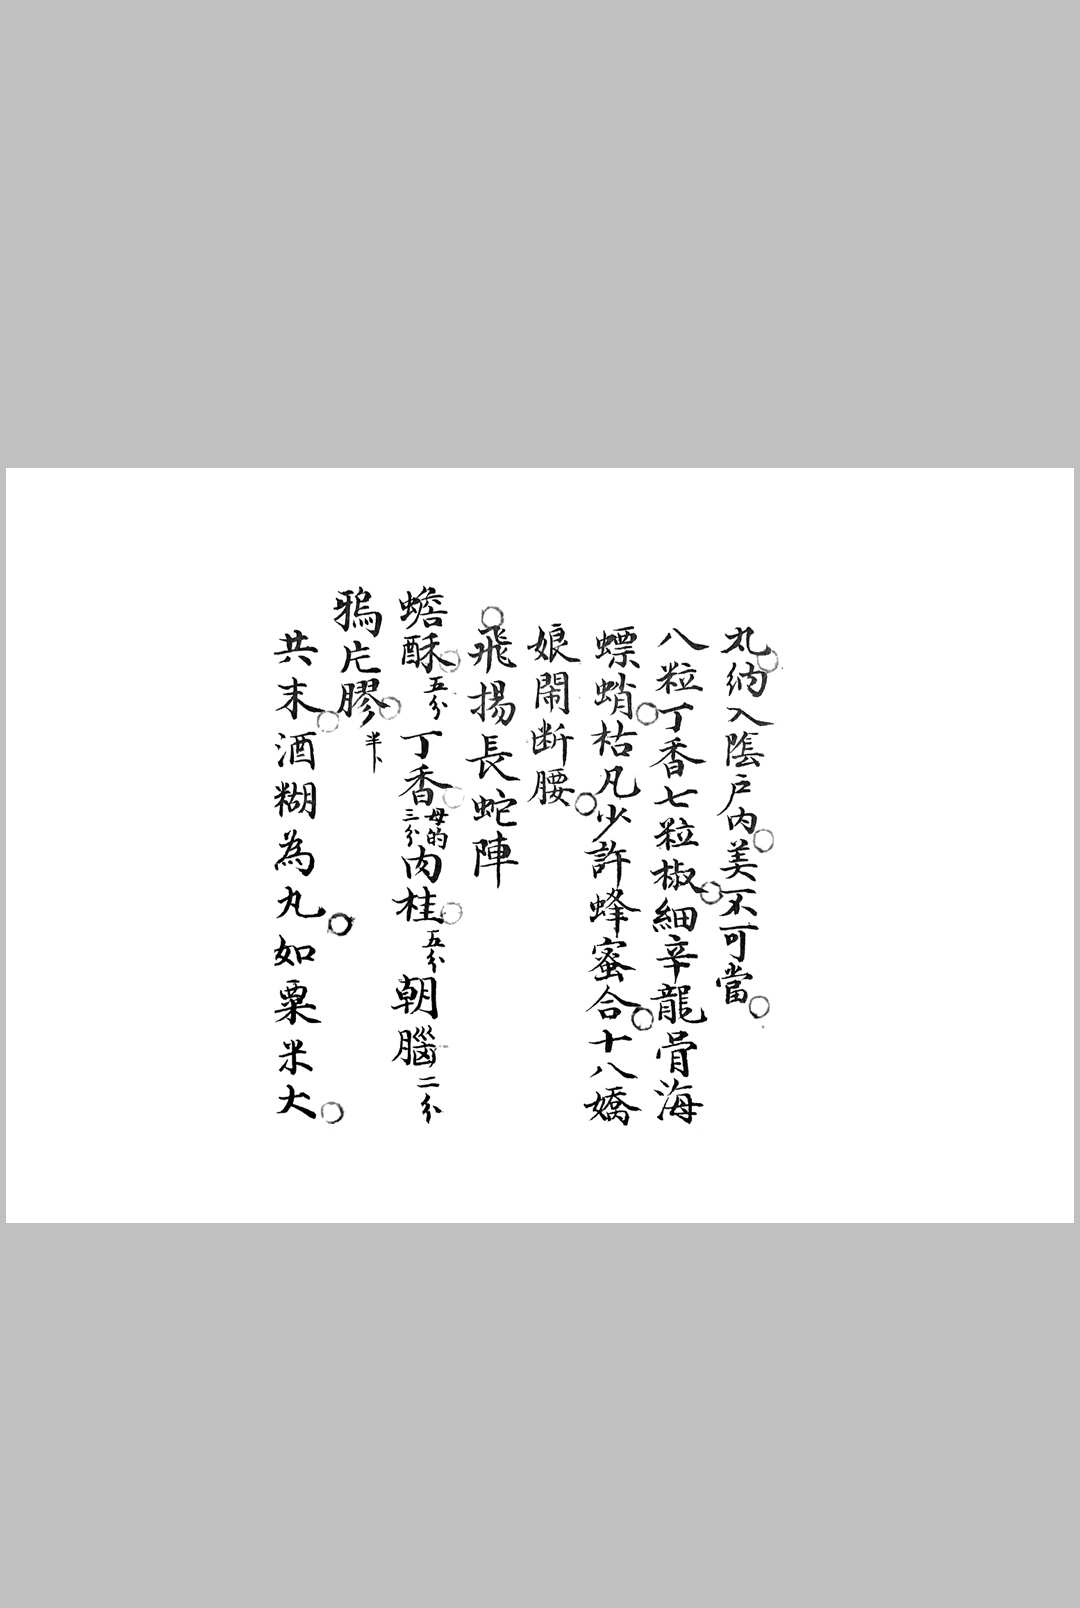 丸納入陰戶內美不可當
八粒丁香七粒椒細辛龍骨海
螵蛸枯凡少許蜂蜜合十八嬌
娘鬧断腰
飛揚長蛇陣
蟾酥五分丁香母的三分肉桂五分朝腦二分
鴉片膠半卜
共末酒糊為丸如粟米大